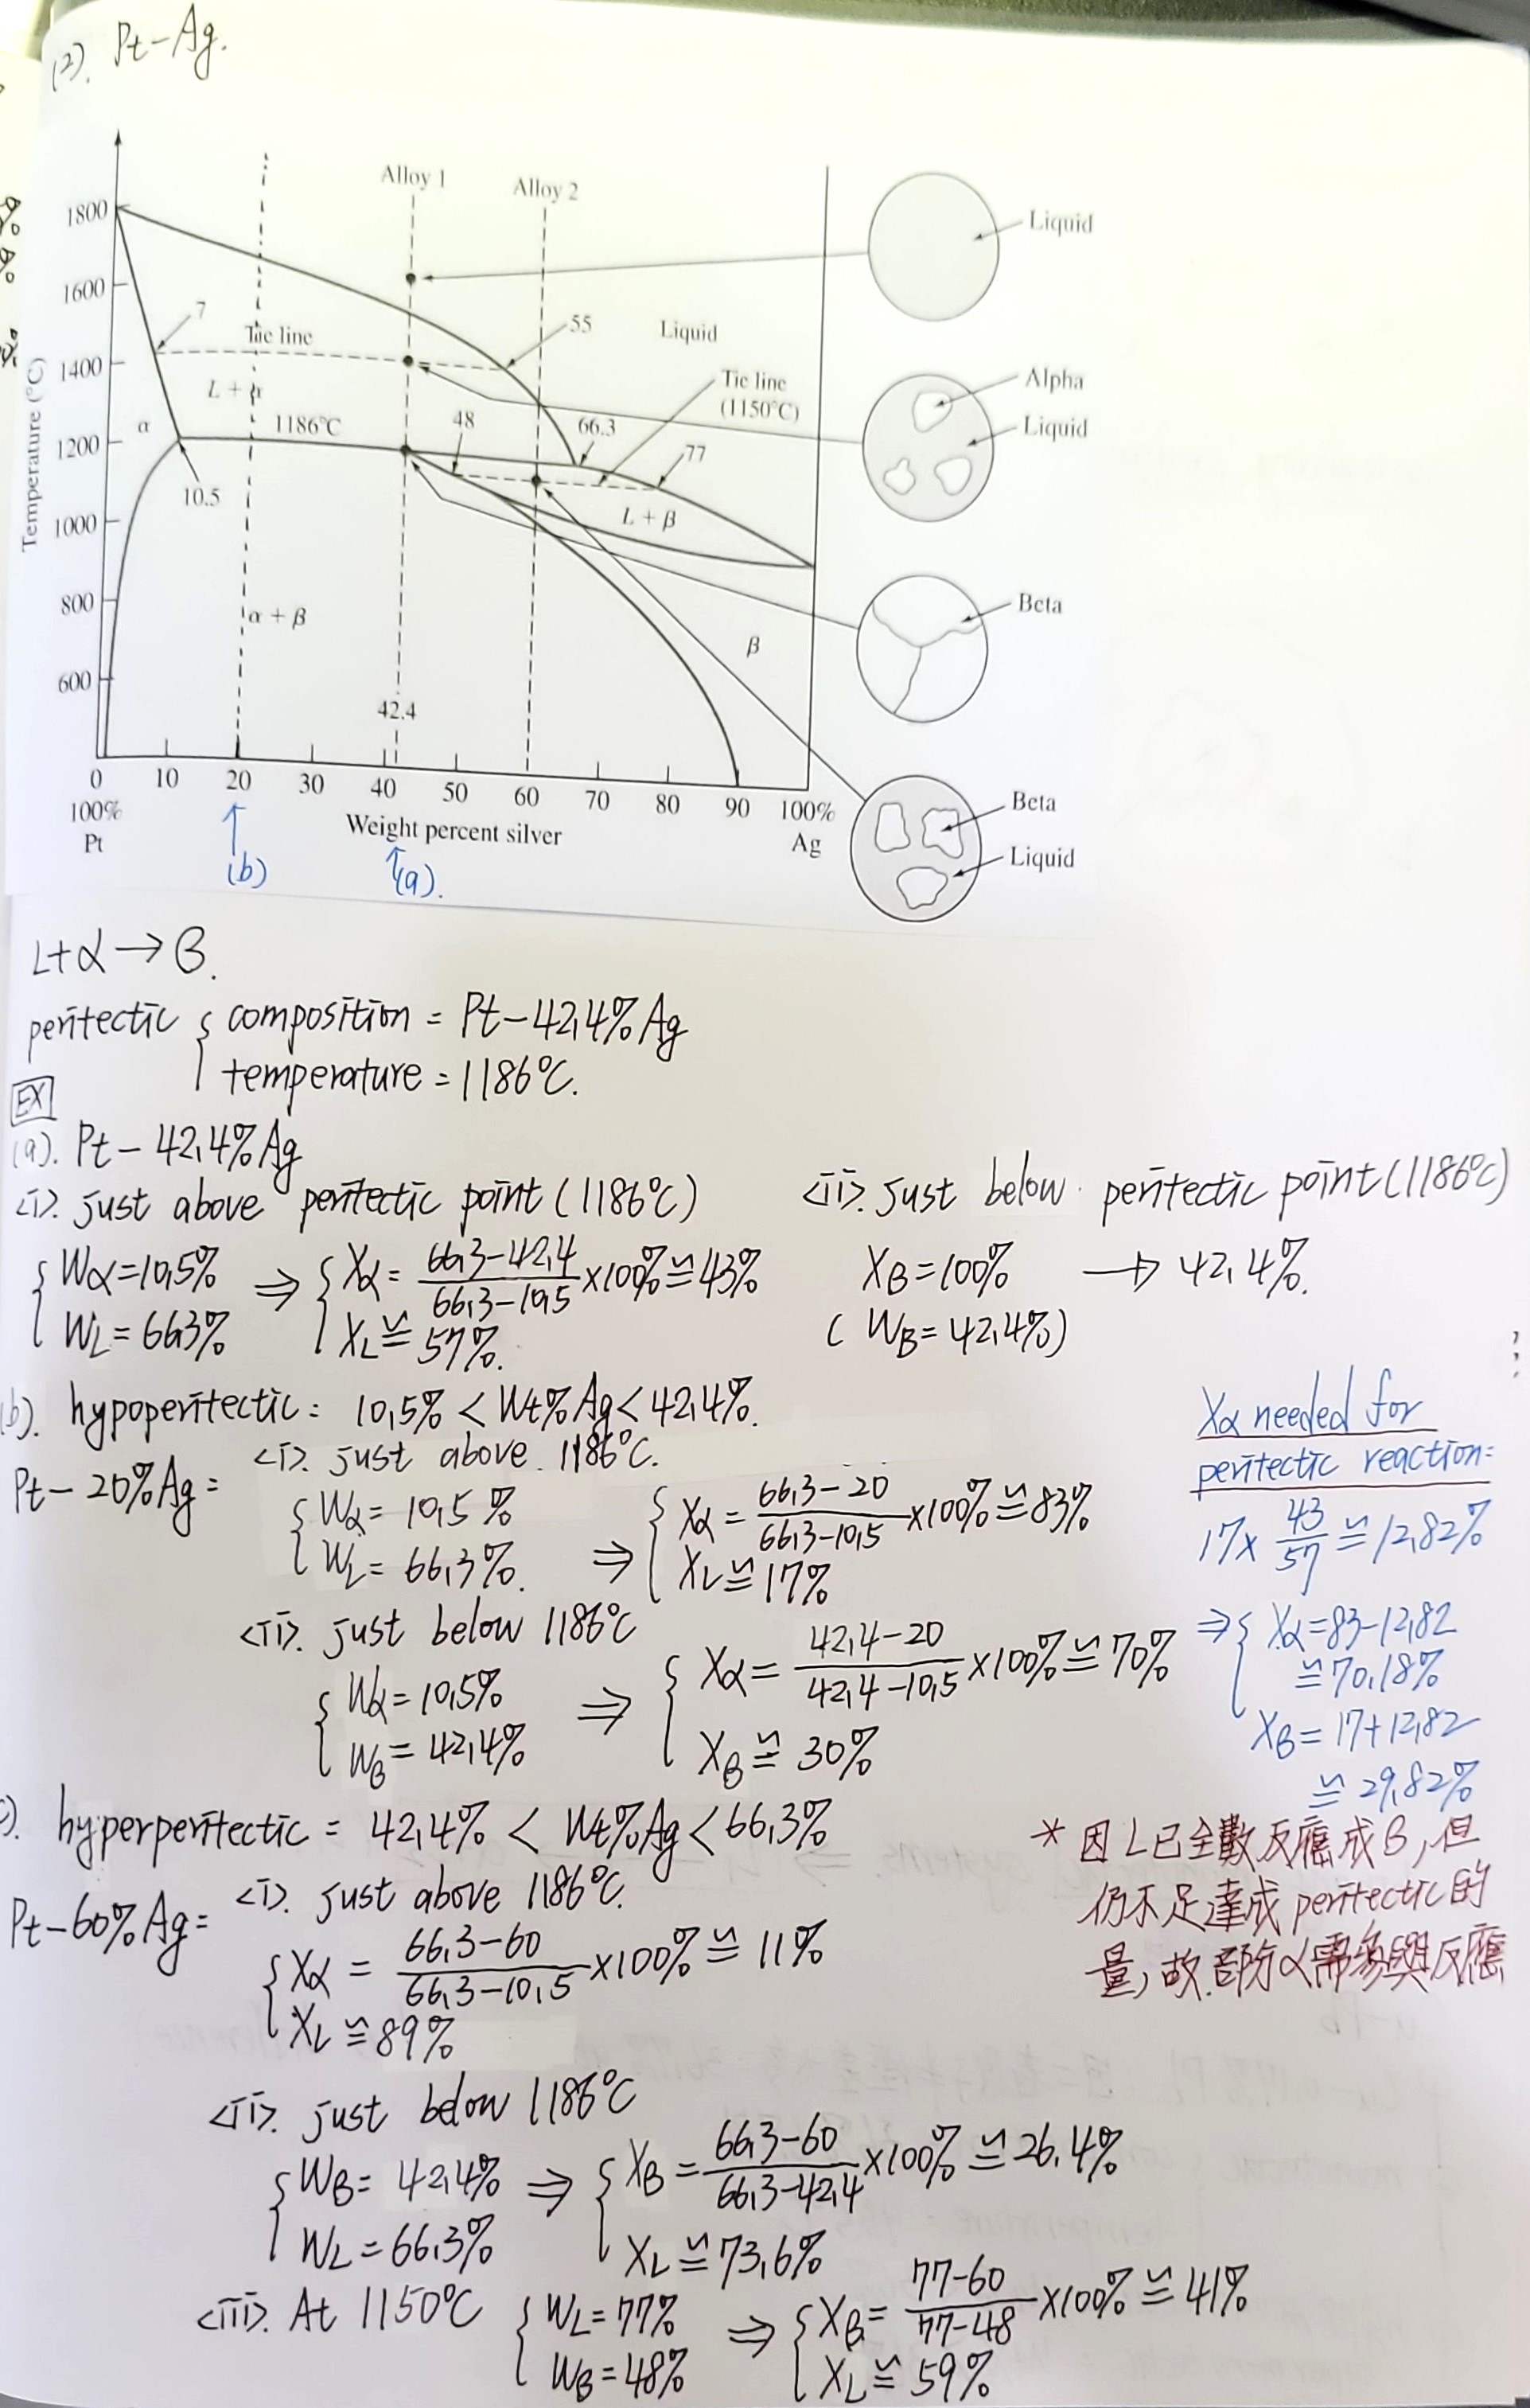 (2). Pt-Ag.
Alloy 1
Alloy 2
Temperature (°C)
1800
1600
1400
1200
1000
800
600
7
Tie line
55
Liquid
L + α
α
1186°C
48
66.3
Tie line
(1150°C)
77
10.5
L + β
α + β
β
42.4
0 10 20 30 40 50 60 70 80 90 100%
100%
Pt
Weight percent silver
Ag
(b)
(a).
Liquid
Alpha
Liquid
Beta
Beta
Liquid
L+α→β.
peritectic { composition = Pt-42.4%Ag
temperature = 1186°C.
EX
(a). Pt-42.4%Ag
<i>. just above peritectic point (1186°C)
Wα=10.5% ⇒ Xα = (66.3-42.4)/(66.3-10.5) ×100% ≅ 43%
WL = 66.3% XL ≅ 57%.
<ii>. just below peritectic point (1186°C)
Xβ=100% → 42.4%.
(Wβ=42.4%)
(b). hypoperitectic: 10.5% < Wt%Ag < 42.4%.
Pt-20%Ag = <i>. just above 1186°C.
Wα = 10.5% Xα = (66.3-20)/(66.3-10.5) ×100% ≅ 83%
WL = 66.3%. ⇒ XL ≅ 17%
<ii>. just below 1186°C
Wα=10.5% ⇒ Xα = (42.4-20)/(42.4-10.5) ×100% ≅ 70%
Wβ = 42.4% Xβ ≅ 30%
Xα needed for
peritectic reaction:
17× 43/57 ≅ 12.82%
⇒ Xα=83-12.82
≅ 70.18%
Xβ = 17+12.82
≅ 29.82%
* 因L已全數反應成β,但
仍不足達成peritectic的
量,故部分α需參與反應
). hyperperitectic = 42.4% < Wt%Ag < 66.3%
Pt-60%Ag = <i>. just above 1186°C.
Xα = (66.3-60)/(66.3-10.5) ×100% ≅ 11%
XL ≅ 89%
<ii>. just below 1186°C
Wβ = 42.4% ⇒ Xβ = (66.3-60)/(66.3-42.4) ×100% ≅ 26.4%
WL = 66.3% XL ≅ 73.6%
<iii>. At 1150°C WL = 77% ⇒ Xβ = (77-60)/(77-48) ×100% ≅ 41%
Wβ = 48% XL ≅ 59%